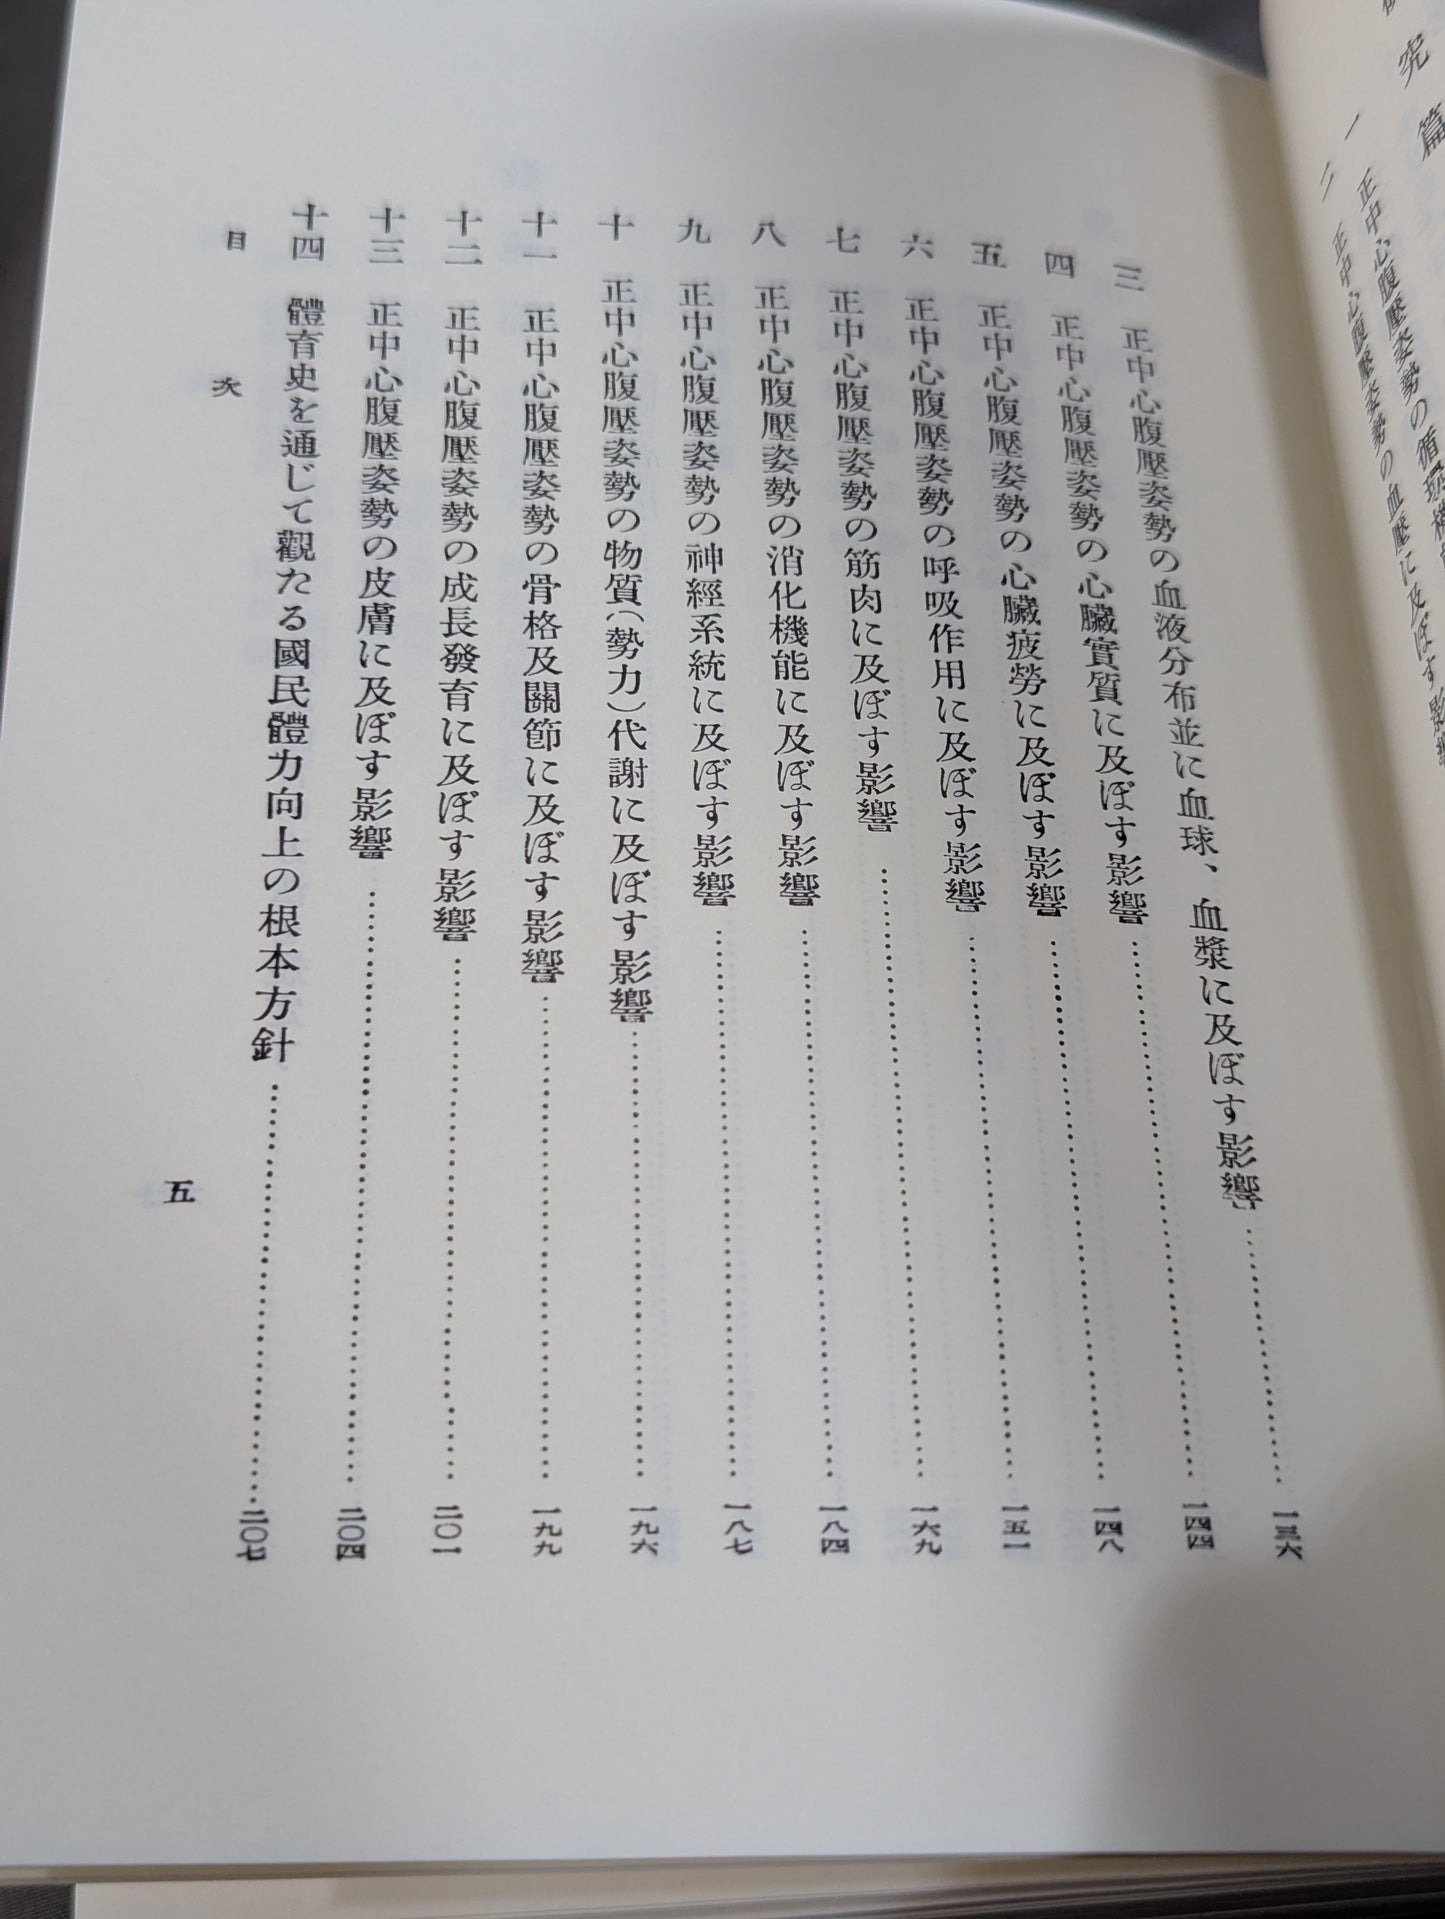 究篇
一 正中心腹壓姿勢の循環機
二 正中心腹壓姿勢の血壓に及ぼす影響
三 正中心腹壓姿勢の血液分布並に血球、血漿に及ぼす影響…………一三六
四 正中心腹壓姿勢の心臟實質に及ぼす影響…………一四四
五 正中心腹壓姿勢の心臟疲勞に及ぼす影響…………一四八
六 正中心腹壓姿勢の呼吸作用に及ぼす影響…………一五一
七 正中心腹壓姿勢の筋肉に及ぼす影響…………一六九
八 正中心腹壓姿勢の消化機能に及ぼす影響…………一八四
九 正中心腹壓姿勢の神經系統に及ぼす影響…………一八七
十 正中心腹壓姿勢の物質(勢力)代謝に及ぼす影響…………一九六
十一 正中心腹壓姿勢の骨格及關節に及ぼす影響…………一九九
十二 正中心腹壓姿勢の成長發育に及ぼす影響…………二〇一
十三 正中心腹壓姿勢の皮膚に及ぼす影響…………二〇四
十四 體育史を通じて觀たる國民體力向上の根本方針…………二〇七
目次
五